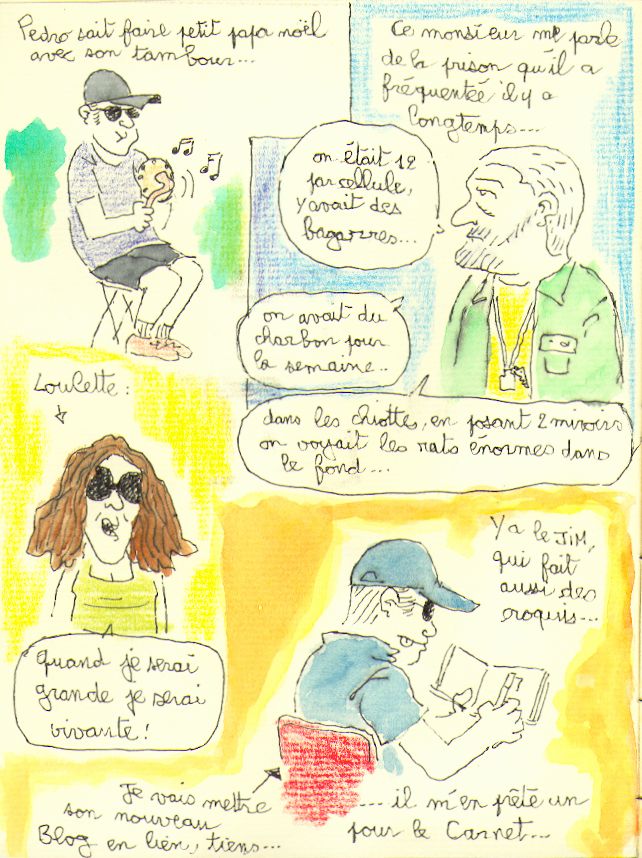 Pedro sait faire petit papa noël
avec son tambour...
Ce monsieur me parle
de la prison qu'il a
fréquentée il y a
longtemps...
on était 12
par cellule,
y avait des
bagarres...
on avait du
charbon pour
la semaine..
dans les chiottes, en posant 2 miroirs
on voyait les rats énormes dans
le fond...
Loulette :
quand je serai
grande je serai
vivante !
Y a le JiM,
qui fait
aussi des
croquis...
Je vais mettre
son nouveau
Blog en lien, tiens...
.... il m'en prête un
pour le Carnet...